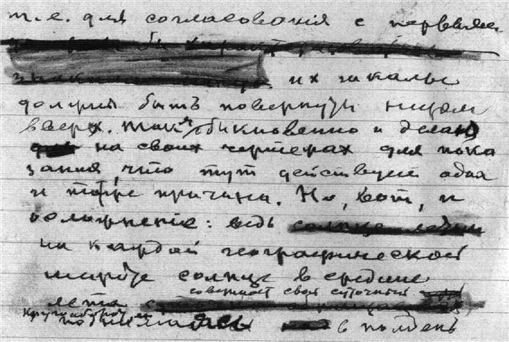 т.е. для согласования с первыми
их шкалы
должны быть повернуты низом
вверх. Так обыкновенно и делаю
на своих чертежах для пока
зания что тут действует одна
и та же причина. Но, вот, и
осложнение: ведь
на каждой географической
широте солнце в средине
совершает свой суточный
лета с
кругооборот
поднимаясь в полдень